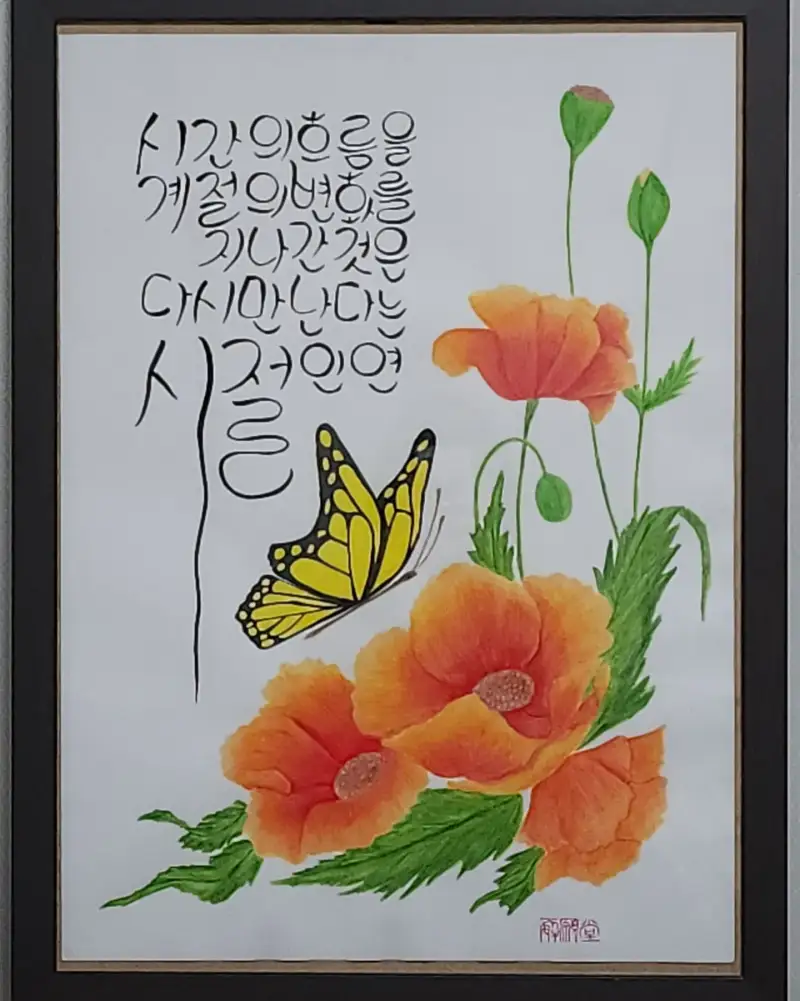 시간의흐름을
계절의변화를
지나간것은
다시만난다는
시절인연